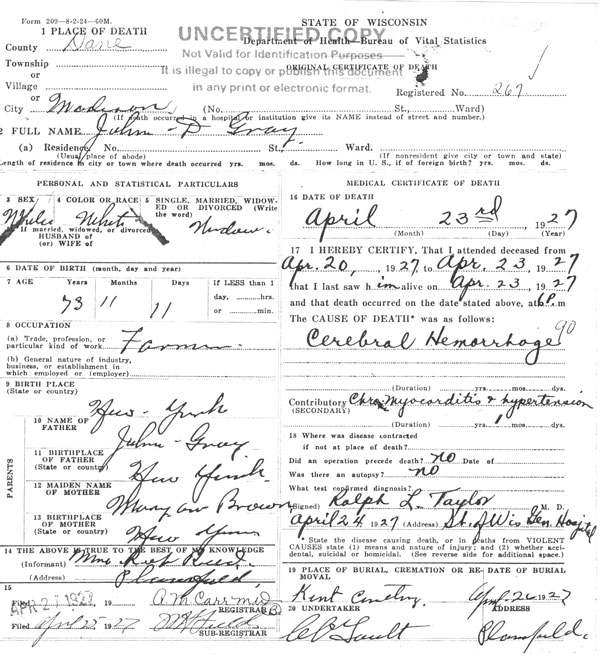 Form 209—8-2-24—60M.
STATE OF WISCONSIN
1 PLACE OF DEATH
UNCERTIFIED COPY
County Dane
Department of Health—Bureau of Vital Statistics
Not Valid for Identification Purposes
Township
ORIGINAL CERTIFICATE OF DEATH
It is illegal to copy or publish this document
or
in any print or electronic format.
Village
Registered No. 267
or
City Madison (No. St., Ward)
(If death occurred in a hospital or institution give its NAME instead of street and number.)
2 FULL NAME John P Gray
(a) Residence, No. St., Ward.
(Usual place of abode) (If nonresident give city or town and state)
Length of residence in city or town where death occurred yrs. mos. ds. How long in U. S., if of foreign birth? yrs. mos. ds.
PERSONAL AND STATISTICAL PARTICULARS
3 SEX 4 COLOR OR RACE 5 SINGLE, MARRIED, WIDOWED OR DIVORCED (Write the word)
If married, widowed, or divorced
HUSBAND of
(or) WIFE of
6 DATE OF BIRTH (month, day and year)
7 AGE Years Months Days If LESS than 1
day, hrs.
or min.
73 11 11
8 OCCUPATION
(a) Trade, profession, or
particular kind of work Farmer
(b) General nature of industry,
business, or establishment in
which employed or (employer)
9 BIRTH PLACE
(State or country)
New York
10 NAME OF
FATHER John Gray
11 BIRTHPLACE
OF FATHER
(State or country) New York
12 MAIDEN NAME
OF MOTHER Mary Ann Brown
13 BIRTHPLACE
OF MOTHER
(State or country) New York
PARENTS
14 THE ABOVE IS TRUE TO THE BEST OF MY KNOWLEDGE
(Informant) Mrs.
(Address) Plainfield
15
APR 27 1927 A M Carr M D
REGISTRAR
Filed April 25 1927
SUB-REGISTRAR
MEDICAL CERTIFICATE OF DEATH
16 DATE OF DEATH
April 23rd, 1927
(Month) (Day) (Year)
17 I HEREBY CERTIFY, That I attended deceased from
Apr. 20, 1927, to Apr. 23, 1927
that I last saw him alive on Apr. 23, 1927
and that death occurred on the date stated above, at 6P. m
The CAUSE OF DEATH* was as follows:
Cerebral Hemorrhage 90
(Duration) yrs. mos. dys.
Contributory Chro. Myocarditis & hypertension
(SECONDARY)
(Duration) yrs. mos. ds.
18 Where was disease contracted
if not at place of death?
Did an operation precede death? no Date of
Was there an autopsy? no
What test confirmed diagnosis?
(Signed) Ralph L. Taylor M. D.
April 24 1927 (Address) St. of Wis. Gen. Hospital
*State the disease causing death, or in deaths from VIOLENT
CAUSES state (1) means and nature of injury; and (2) whether accidental, suicidal or homicidal. (See reverse side for additional space.)
19 PLACE OF BURIAL, CREMATION OR REMOVAL DATE OF BURIAL
Kent Cemetery April 26 1927
20 UNDERTAKER ADDRESS
Sault Plainfield